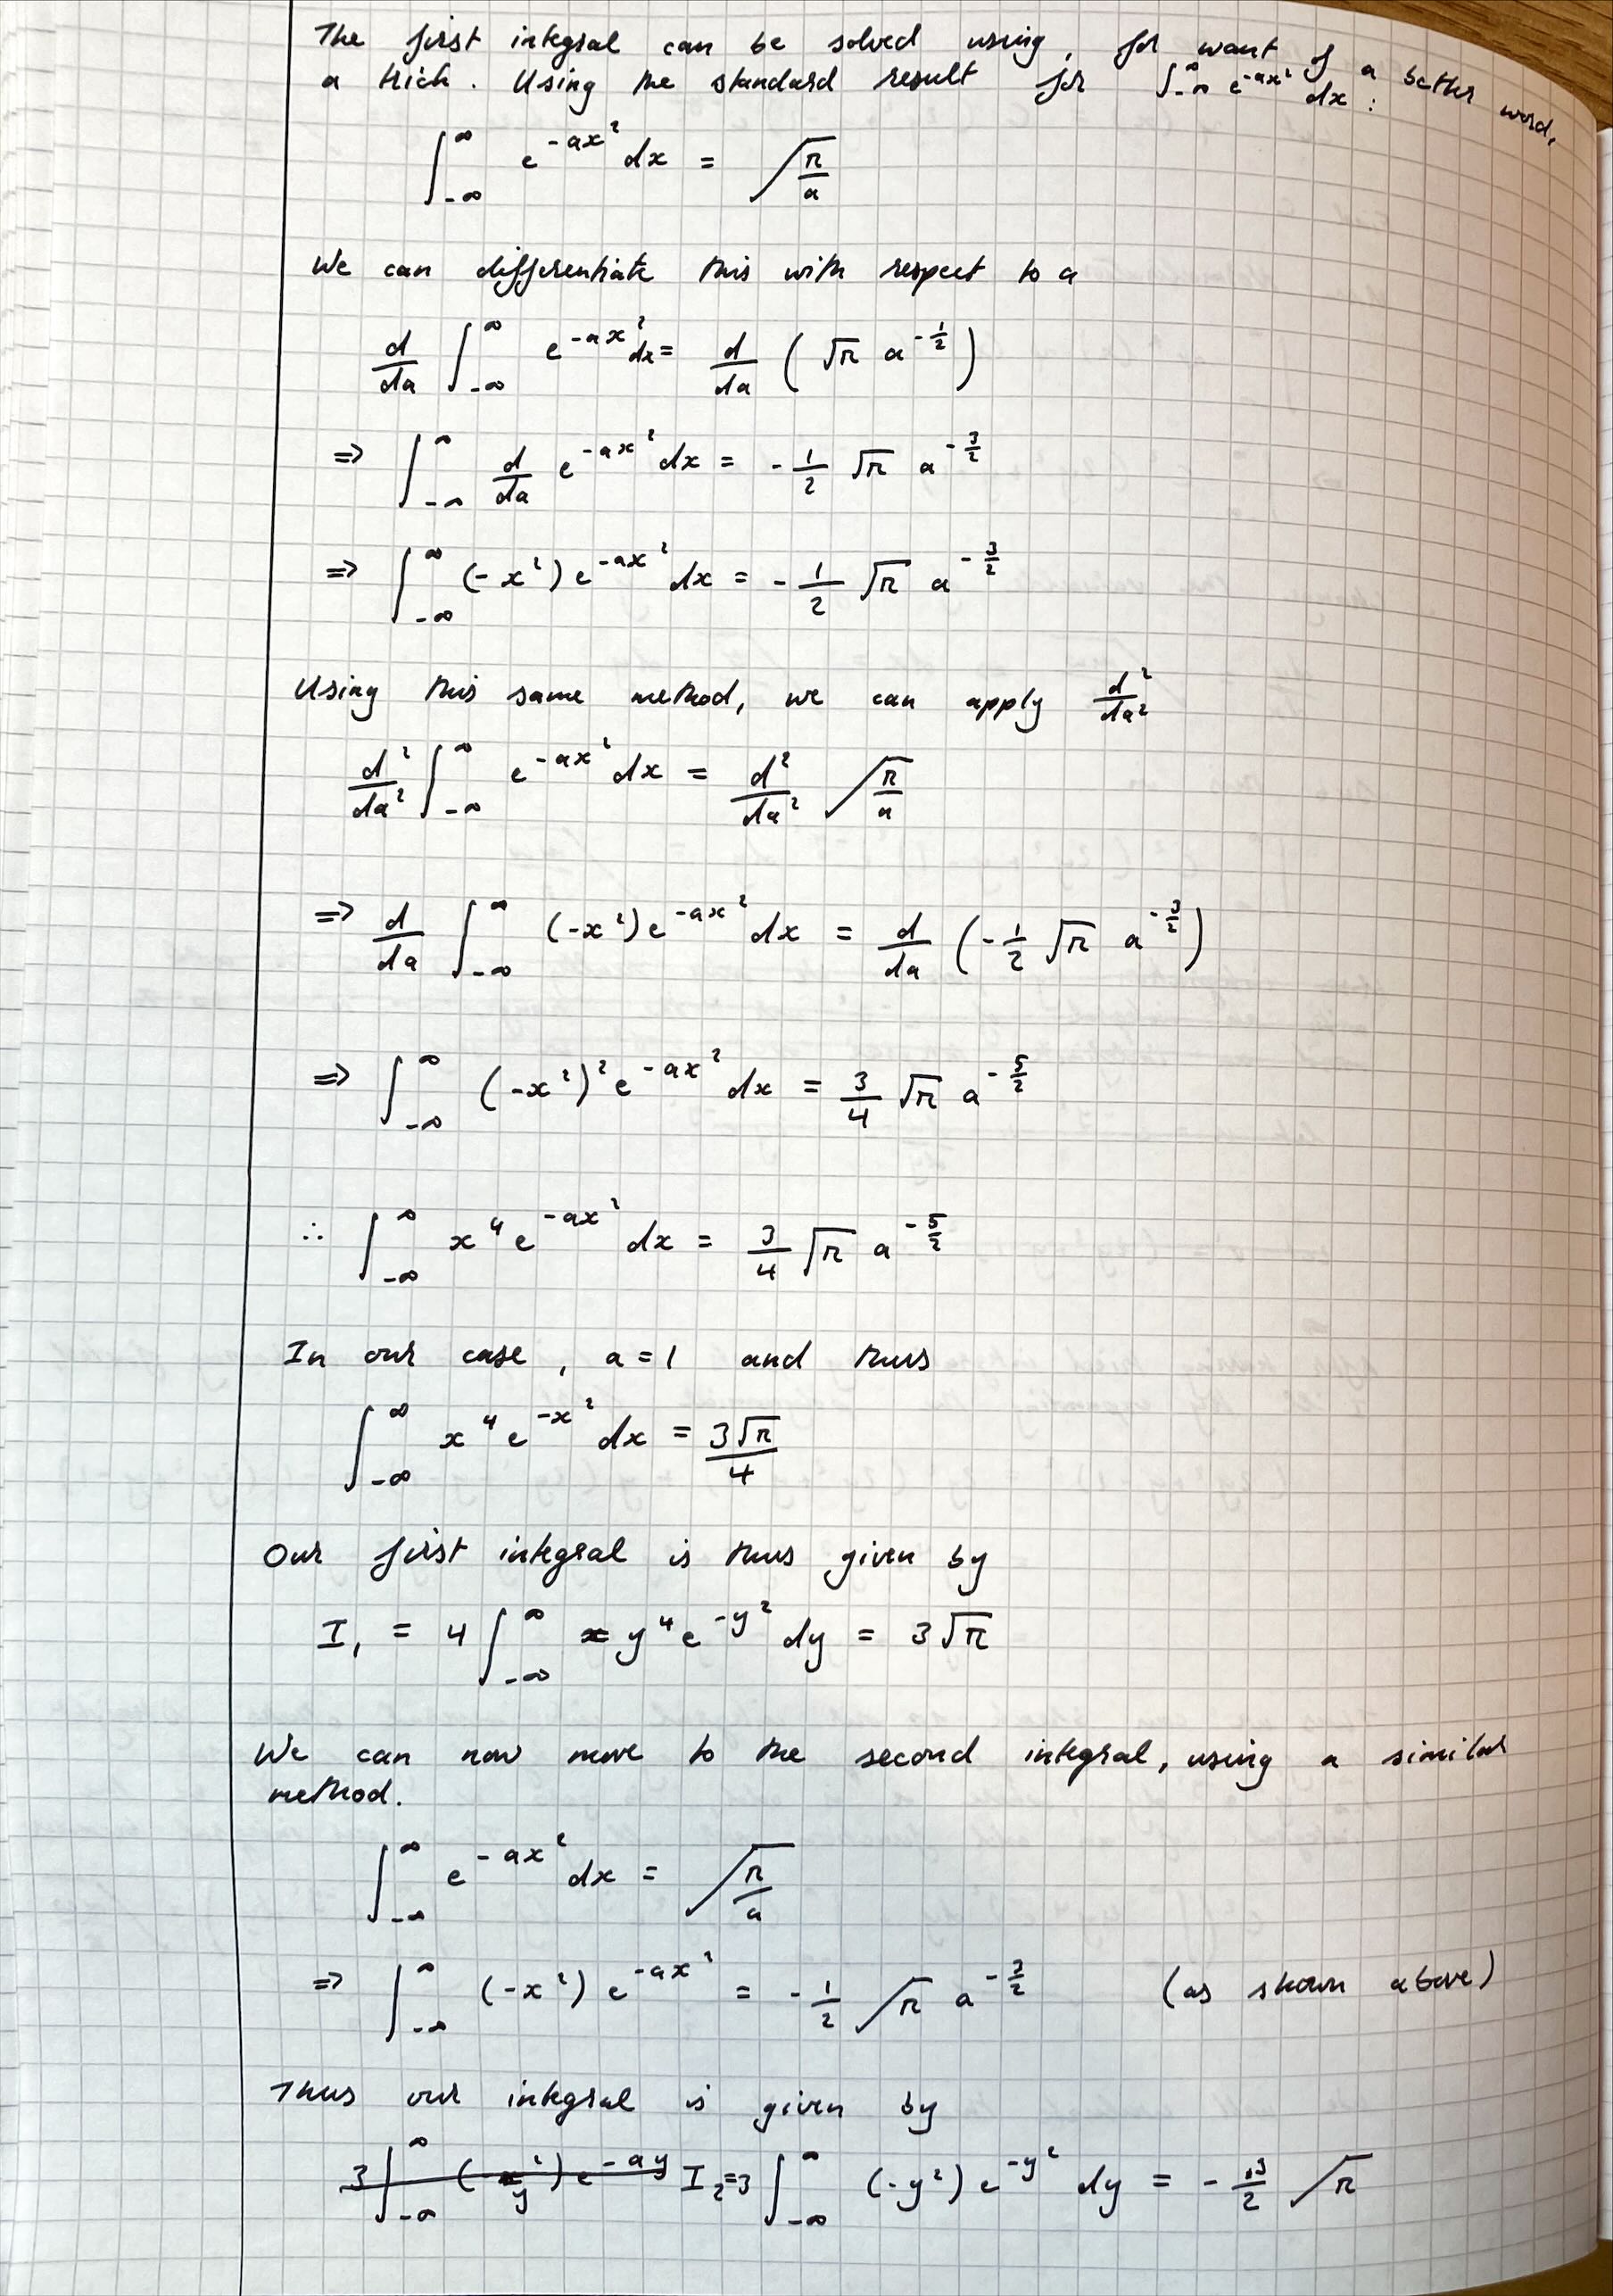 The first integral can be solved using, for want of a better word,
a trick. Using the standard result for ∫_{-∞}^{∞} e^{-ax²} dx :
∫_{-∞}^{∞} e^{-ax²} dx = √(π/a)
We can differentiate this with respect to a
d/da ∫_{-∞}^{∞} e^{-ax²} dx = d/da (√π a^{-1/2})
⇒ ∫_{-∞}^{∞} d/da e^{-ax²} dx = -1/2 √π a^{-3/2}
⇒ ∫_{-∞}^{∞} (-x²) e^{-ax²} dx = -1/2 √π a^{-3/2}
Using this same method, we can apply d²/da²
d²/da² ∫_{-∞}^{∞} e^{-ax²} dx = d²/da² √(π/a)
⇒ d/da ∫_{-∞}^{∞} (-x²) e^{-ax²} dx = d/da (-1/2 √π a^{-3/2})
⇒ ∫_{-∞}^{∞} (-x²)² e^{-ax²} dx = 3/4 √π a^{-5/2}
∴ ∫_{-∞}^{∞} x⁴ e^{-ax²} dx = 3/4 √π a^{-5/2}
In our case, a = 1 and thus
∫_{-∞}^{∞} x⁴ e^{-x²} dx = 3√π/4
Our first integral is thus given by
I₁ = 4 ∫_{-∞}^{∞} y⁴ e^{-y²} dy = 3√π
We can now move to the second integral, using a similar
method.
∫_{-∞}^{∞} e^{-ax²} dx = √(π/a)
⇒ ∫_{-∞}^{∞} (-x²) e^{-ax²} = -1/2 √π a^{-3/2} (as shown above)
Thus our integral is given by
I₂ = 3 ∫_{-∞}^{∞} (-y²) e^{-y²} dy = -3/2 √π